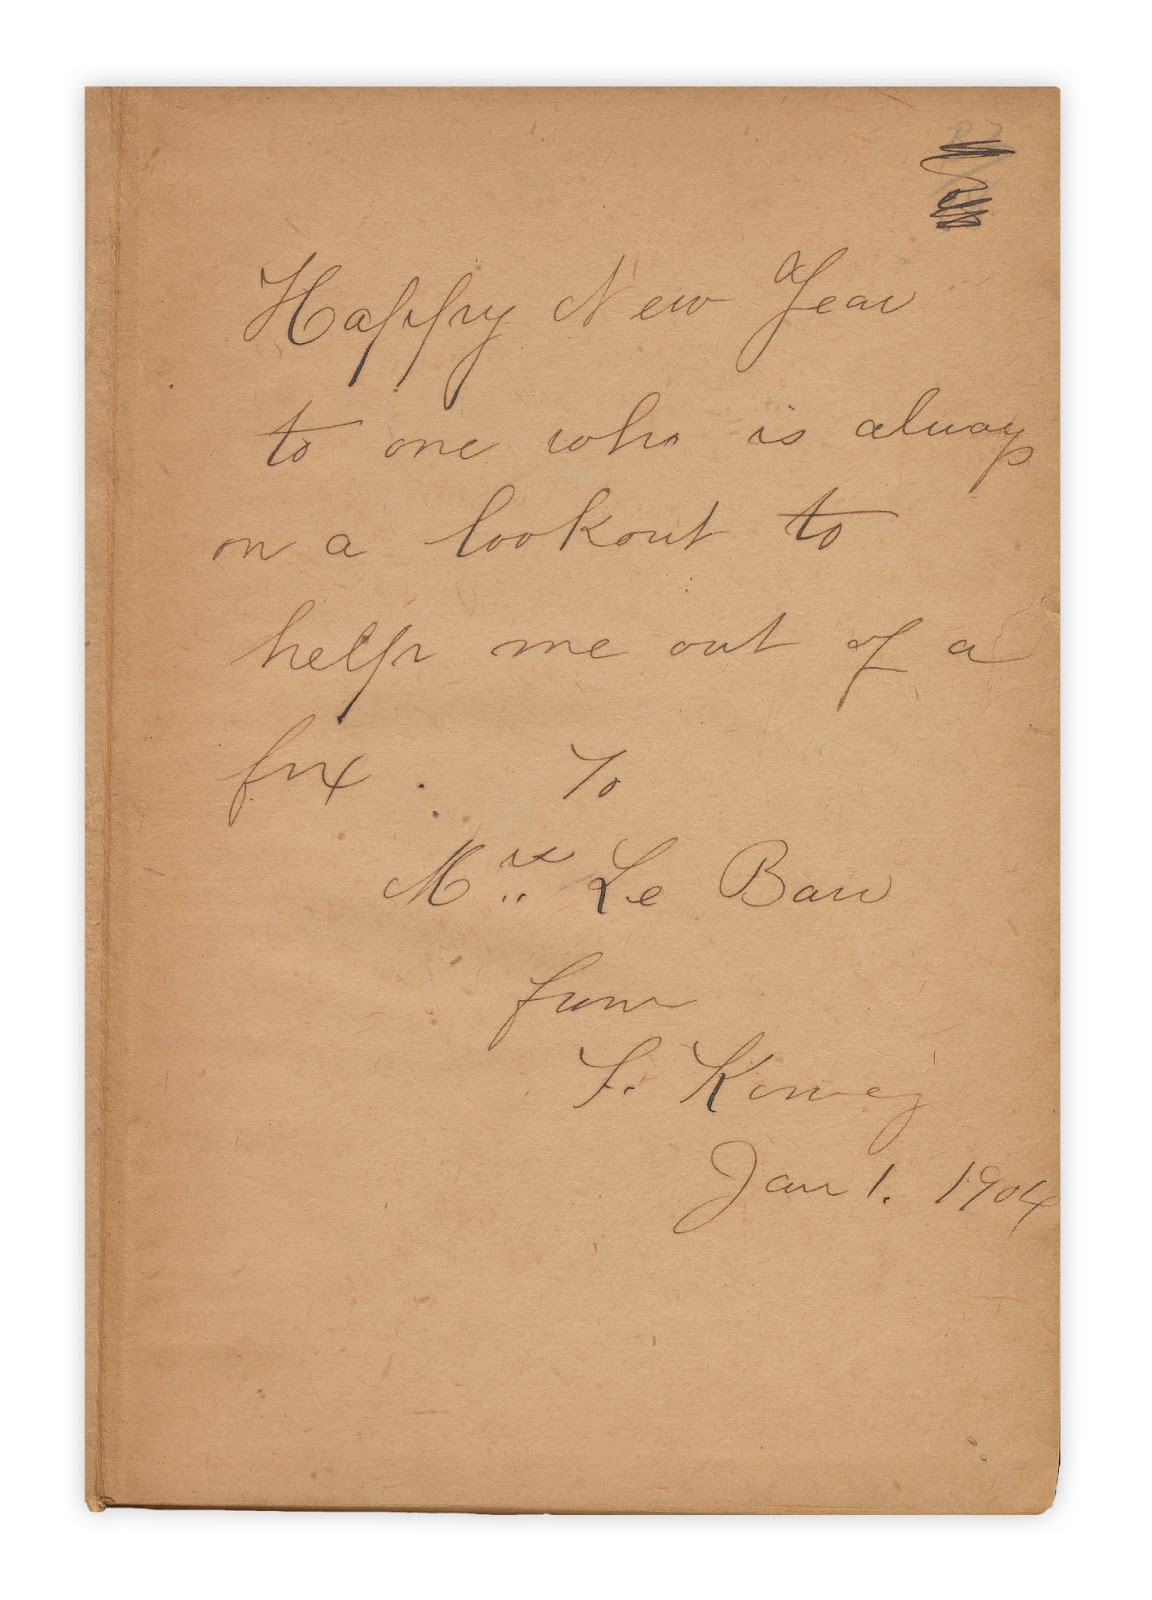 Happy New Year
to one who is always
on a lookout to
help me out of a
fix. To
Mrs. Le Barr
from
F.
Jan 1. 1904